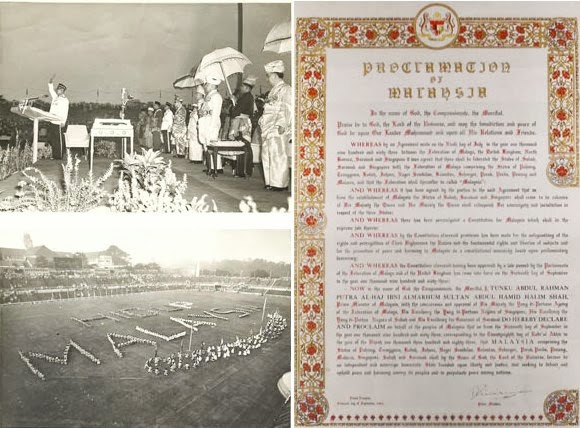 MALAYSIA
PROCLAMATION
OF
MALAYSIA
In the name of God, the Compassionate, the Merciful.
Praise be to God, the Lord of the Universe, and may the benediction and peace of
God be upon Our Leader Muhammad and upon all His Relations and Friends.
WHEREAS by an Agreement made on the Ninth day of July in the year one thousand
nine hundred and sixty-three between the Federation of Malaya, the United Kingdom, North
Borneo, Sarawak and Singapore it was agreed that there shall be federated the States of Sabah,
Sarawak and Singapore with the Federation of Malaya comprising the States of Pahang,
Trengganu, Kedah, Johore, Negri Sembilan, Kelantan, Selangor, Perak, Perlis, Penang and
Malacca, and that the Federation shall thereafter be called "Malaysia":
AND WHEREAS it has been agreed by the parties to the said Agreement that as
from the establishment of Malaysia the States of Sabah, Sarawak and Singapore shall cease to be colonies
of Her Majesty the Queen and Her Majesty the Queen shall relinquish Her sovereignty and jurisdiction in
respect of the three States:
AND WHEREAS there has been promulgated a Constitution for Malaysia which shall be the
supreme law therein:
AND WHEREAS by the Constitution aforesaid provision has been made for the safeguarding of the
rights and prerogatives of Their Highnesses the Rulers and the fundamental rights and liberties of subjects and
for the promotion of peace and harmony in Malaysia as a constitutional monarchy based upon parliamentary
democracy:
AND WHEREAS the Constitution aforesaid having been approved by a law passed by the Parliaments
of the Federation of Malaya and of the United Kingdom has come into force on the Sixteenth day of September
in the year one thousand nine hundred and sixty-three:
NOW in the name of God, the Compassionate, the Merciful, I TUNKU ABDUL RAHMAN
PUTRA AL-HAJ IBNI ALMARHUM SULTAN ABDUL HAMID HALIM SHAH,
Prime Minister of Malaysia, with the concurrence and approval of His Majesty the Yang di-Pertuan Agong
of the Federation of Malaya, His Excellency the Yang di-Pertuan Negara of Singapore, His Excellency the
Yang di-Pertua Negara of Sabah and His Excellency the Governor of Sarawak DO HEREBY DECLARE
AND PROCLAIM on behalf of the peoples of Malaysia that as from the Sixteenth day of September in
the year one thousand nine hundred and sixty-three,
MALAYSIA comprising the
States of Pahang, Trengganu, Kedah, Johore, Negri Sembilan, Kelantan, Selangor, Perak, Perlis, Penang,
Malacca, Singapore, Sabah and Sarawak shall by the Grace of God, the Lord of the Universe, forever be
an independent and sovereign democratic State founded upon liberty and justice, ever seeking to defend and
uphold peace and harmony among its peoples and to perpetuate peace among nations.
Prime Minister.